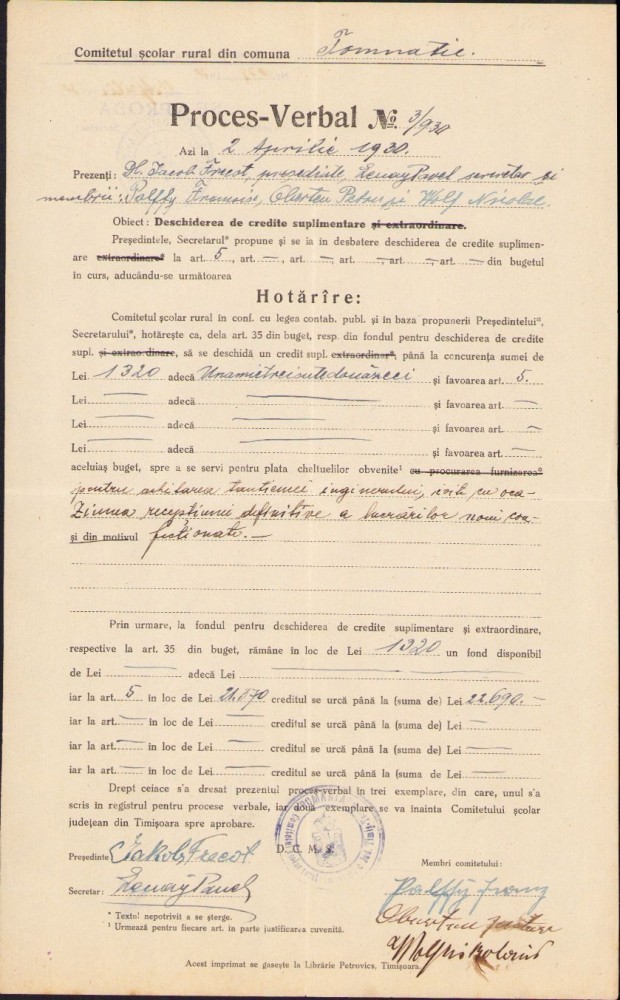 Comitetul școlar rural din comuna Tomnatic.
Proces-Verbal No. 3/930
Azi la 2 Aprilie 1930.
Prezenți: Dl. Iacob Frecot, președinte, Lenay Pavel secretar și
membrii: Palffy Francisc, Oberten Petru și Wolf Nicolae.
Obiect: Deschiderea de credite suplimentare și extraordinare.
Președintele, Secretarul* propune și se ia in desbatere deschiderea de credite suplimen-
are extraordinare* la art. 5, art. —, art. —, art. —, art. —, art. — din bugetul
în curs, aducându-se următoarea
Hotărîre:
Comitetul școlar rural în conf. cu legea contab. publ. și in baza propunerii Președintelui*,
Secretarului*, hotărește ca, dela art. 35 din buget, resp. din fondul pentru deschiderea de credite
supl. și extrao.dinare, să se deschidă un credit supl. extraordinar*, până la concurența sumei de
Lei 1320 adecă Unamietreisutedouăzeci și favoarea art. 5.
Lei — adecă — și favoarea art. —
Lei — adecă — și favoarea art. —
Lei — adecă — și favoarea art. —
aceluiaș buget, spre a se servi pentru plata cheltuelilor obvenite¹ cu procurarea furnizarea*
pentru achitarea inginerului, cu oca-
ziunea recepțiunei definitive a lucrărilor noui con-
și din motivul fecționate. —
Prin urmare, la fondul pentru deschiderea de credite suplimentare și extraordinare,
respective la art. 35 din buget, rămâne în loc de Lei 1320 un fond disponibil
de Lei — adecă Lei —
iar la art. 5 in loc de Lei 21.370 creditul se urcă până la (suma de) Lei 22.690. —
iar la art. — in loc de Lei — creditul se urcă până la (suma de) Lei —
iar la art. — in loc de Lei — creditul se urcă până la (suma de) Lei —
iar la art. — in loc de Lei — creditul se urcă până la (suma de) Lei —
Drept ceiace s'a dresat prezentul proces-verbal in trei exemplare, din care, unul s'a
scris in registrul pentru procese verbale, iar două exemplare se va inainta Comitetului școlar
județean din Timișoara spre aprobare.
ROMANIA
D. C. M. S.
Președinte: Jakob Frecot
Membri comitetului:
Secretar: Lenay Pavel
Palffy Franz
* Textul nepotrivit a se șterge.
¹ Urmează pentru fiecare art. in parte justificarea cuvenită.
Acest imprimat se gasește la Librărie Petrovics, Timișoara